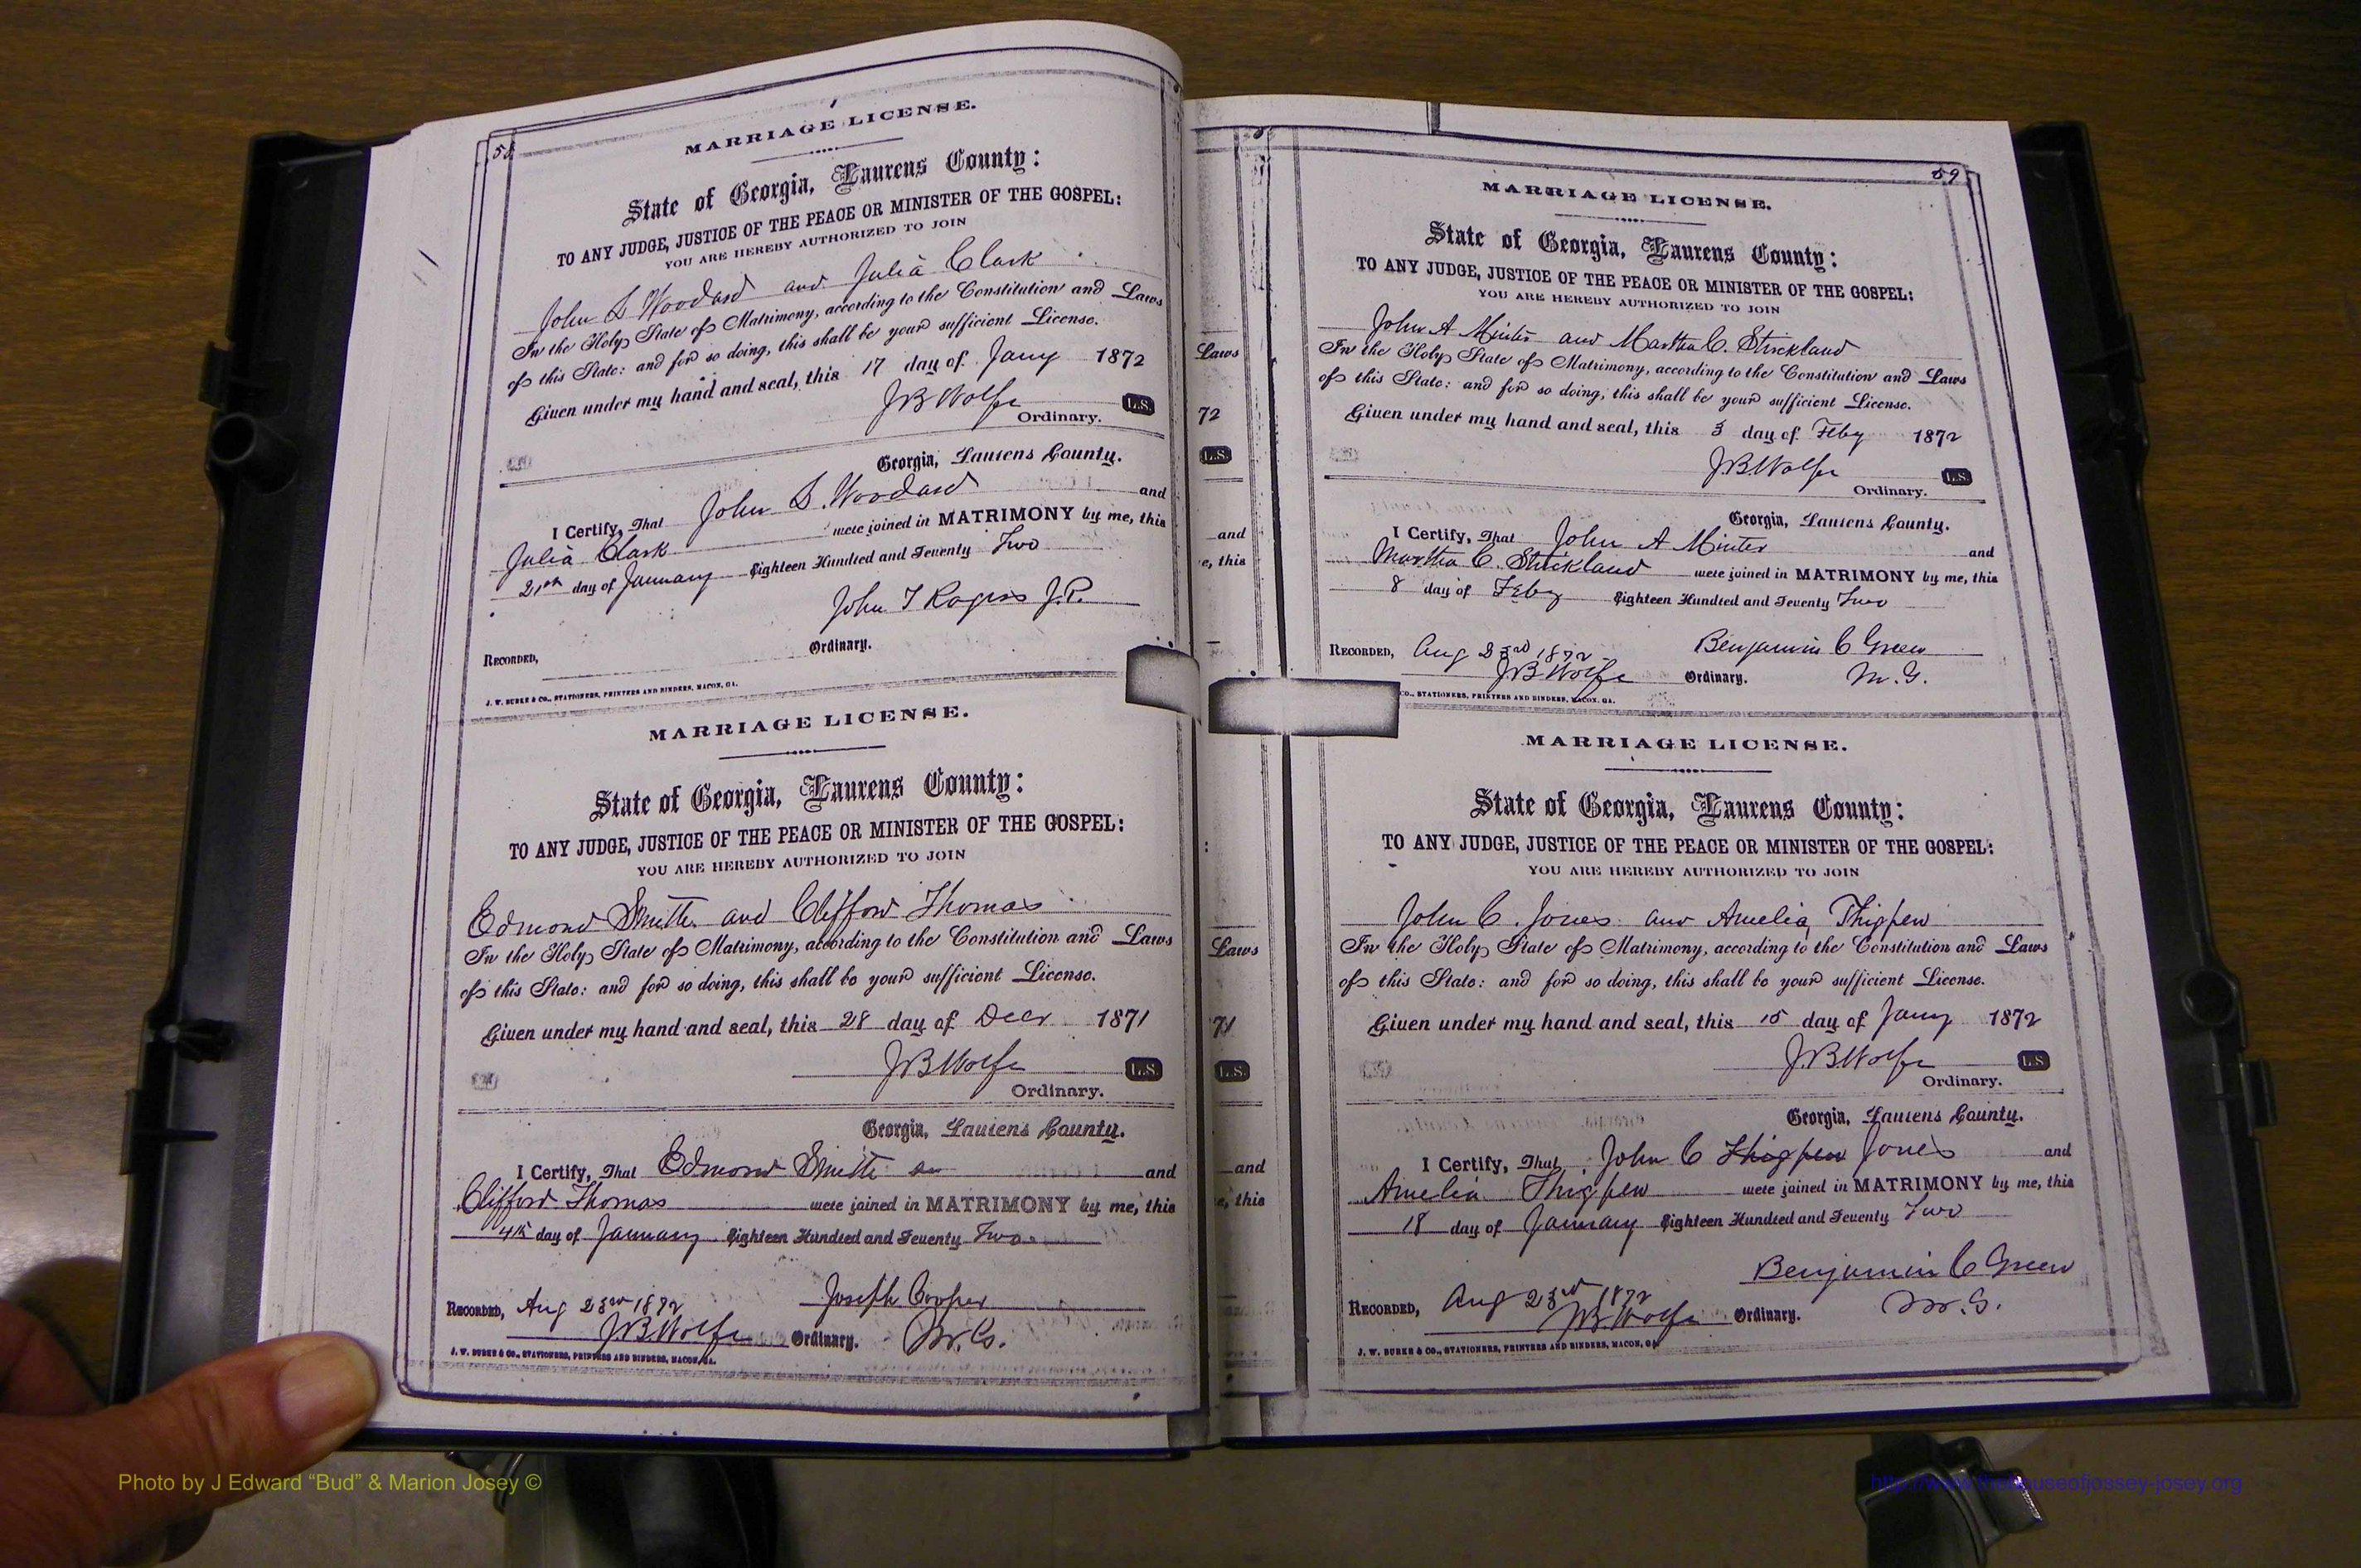 58
MARRIAGE LICENSE.
State of Georgia, Laurens County:
TO ANY JUDGE, JUSTICE OF THE PEACE OR MINISTER OF THE GOSPEL:
YOU ARE HEREBY AUTHORIZED TO JOIN
John S Woodard and Julia Clark
In the Holy State of Matrimony, according to the Constitution and Laws
of this State: and for so doing, this shall be your sufficient License.
Given under my hand and seal, this 17 day of Jany 1872
JB Wolfe L.S.
Ordinary.
Georgia, Laurens County.
I Certify, That John S. Woodard and
Julia Clark were joined in MATRIMONY by me, this
21st day of January Eighteen Hundred and Seventy Two
John T Rogers J.P.
RECORDED, Ordinary.
J. W. BURKE & CO., STATIONERS, PRINTERS AND BINDERS, MACON, GA.
MARRIAGE LICENSE.
State of Georgia, Laurens County:
TO ANY JUDGE, JUSTICE OF THE PEACE OR MINISTER OF THE GOSPEL:
YOU ARE HEREBY AUTHORIZED TO JOIN
Edmond Smith and Clifford Thomas
In the Holy State of Matrimony, according to the Constitution and Laws
of this State: and for so doing, this shall be your sufficient License.
Given under my hand and seal, this 28 day of Decr 1871
JB Wolfe L.S.
Ordinary.
Georgia, Laurens County.
I Certify, That Edmond Smith and
Clifford Thomas were joined in MATRIMONY by me, this
4th day of January Eighteen Hundred and Seventy Two
Joseph Cooper
RECORDED, Aug 23rd 1872
JB Wolfe Ordinary. M.G.
J. W. BURKE & CO., STATIONERS, PRINTERS AND BINDERS, MACON, GA.
Laws
72
L.S.
and
e, this
:
Laws
71
L.S.
and
e, this
59
MARRIAGE LICENSE.
State of Georgia, Laurens County:
TO ANY JUDGE, JUSTICE OF THE PEACE OR MINISTER OF THE GOSPEL:
YOU ARE HEREBY AUTHORIZED TO JOIN
John A Minter and Martha C. Strickland
In the Holy State of Matrimony, according to the Constitution and Laws
of this State: and for so doing, this shall be your sufficient License.
Given under my hand and seal, this 3 day of Feby 1872
JB Wolfe L.S.
Ordinary.
Georgia, Laurens County.
I Certify, That John A Minter and
Martha C. Strickland were joined in MATRIMONY by me, this
8 day of Feby Eighteen Hundred and Seventy Two
Benjamin C Green
RECORDED, Aug 23rd 1872
JB Wolfe Ordinary. M.G.
CO., STATIONERS, PRINTERS AND BINDERS, MACON, GA.
MARRIAGE LICENSE.
State of Georgia, Laurens County:
TO ANY JUDGE, JUSTICE OF THE PEACE OR MINISTER OF THE GOSPEL:
YOU ARE HEREBY AUTHORIZED TO JOIN
John C. Jones and Amelia Thigpen
In the Holy State of Matrimony, according to the Constitution and Laws
of this State: and for so doing, this shall be your sufficient License.
Given under my hand and seal, this 15 day of Jany 1872
J.B. Wolfe L.S
Ordinary.
Georgia, Laurens County.
I Certify, That John C Thigpen Jones and
Amelia Thigpen were joined in MATRIMONY by me, this
18 day of January Eighteen Hundred and Seventy Two
Benjamin C Green
RECORDED, Aug 23rd 1872 M.G.
JB Wolfe Ordinary.
J. W. BURKE & CO., STATIONERS, PRINTERS AND BINDERS, MACON, GA.
Photo by J Edward “Bud” & Marion Josey ©
http://www.thehouseofjossey-josey.org